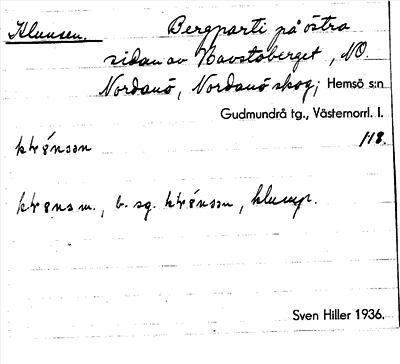 Klunsen. Bergparti på östra
sidan av Havstoberget, NO.
Nordanö, Nordanö skog; Hemsö s:n
Gudmundrå tg., Västernorrl. l.
118.
m., b. sg. klump.
Sven Hiller 1936.